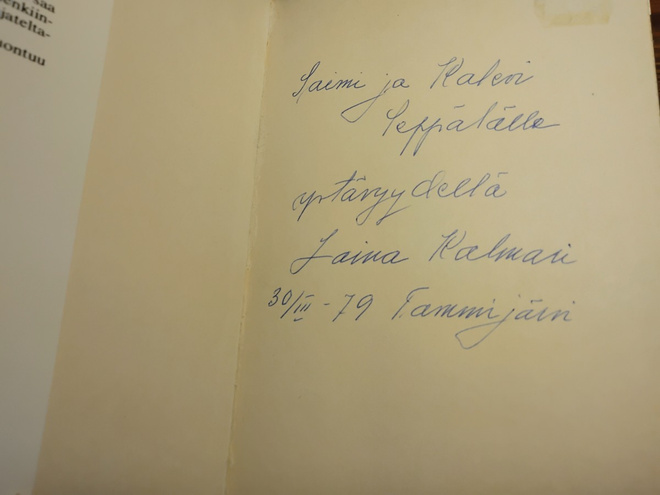 saa
enkiin-
jatelta-
uontuu
Saimi ja Kalevi
Seppälälle
ystävyydellä
Laina Kalmari
30/III - 79 Tammijärvi